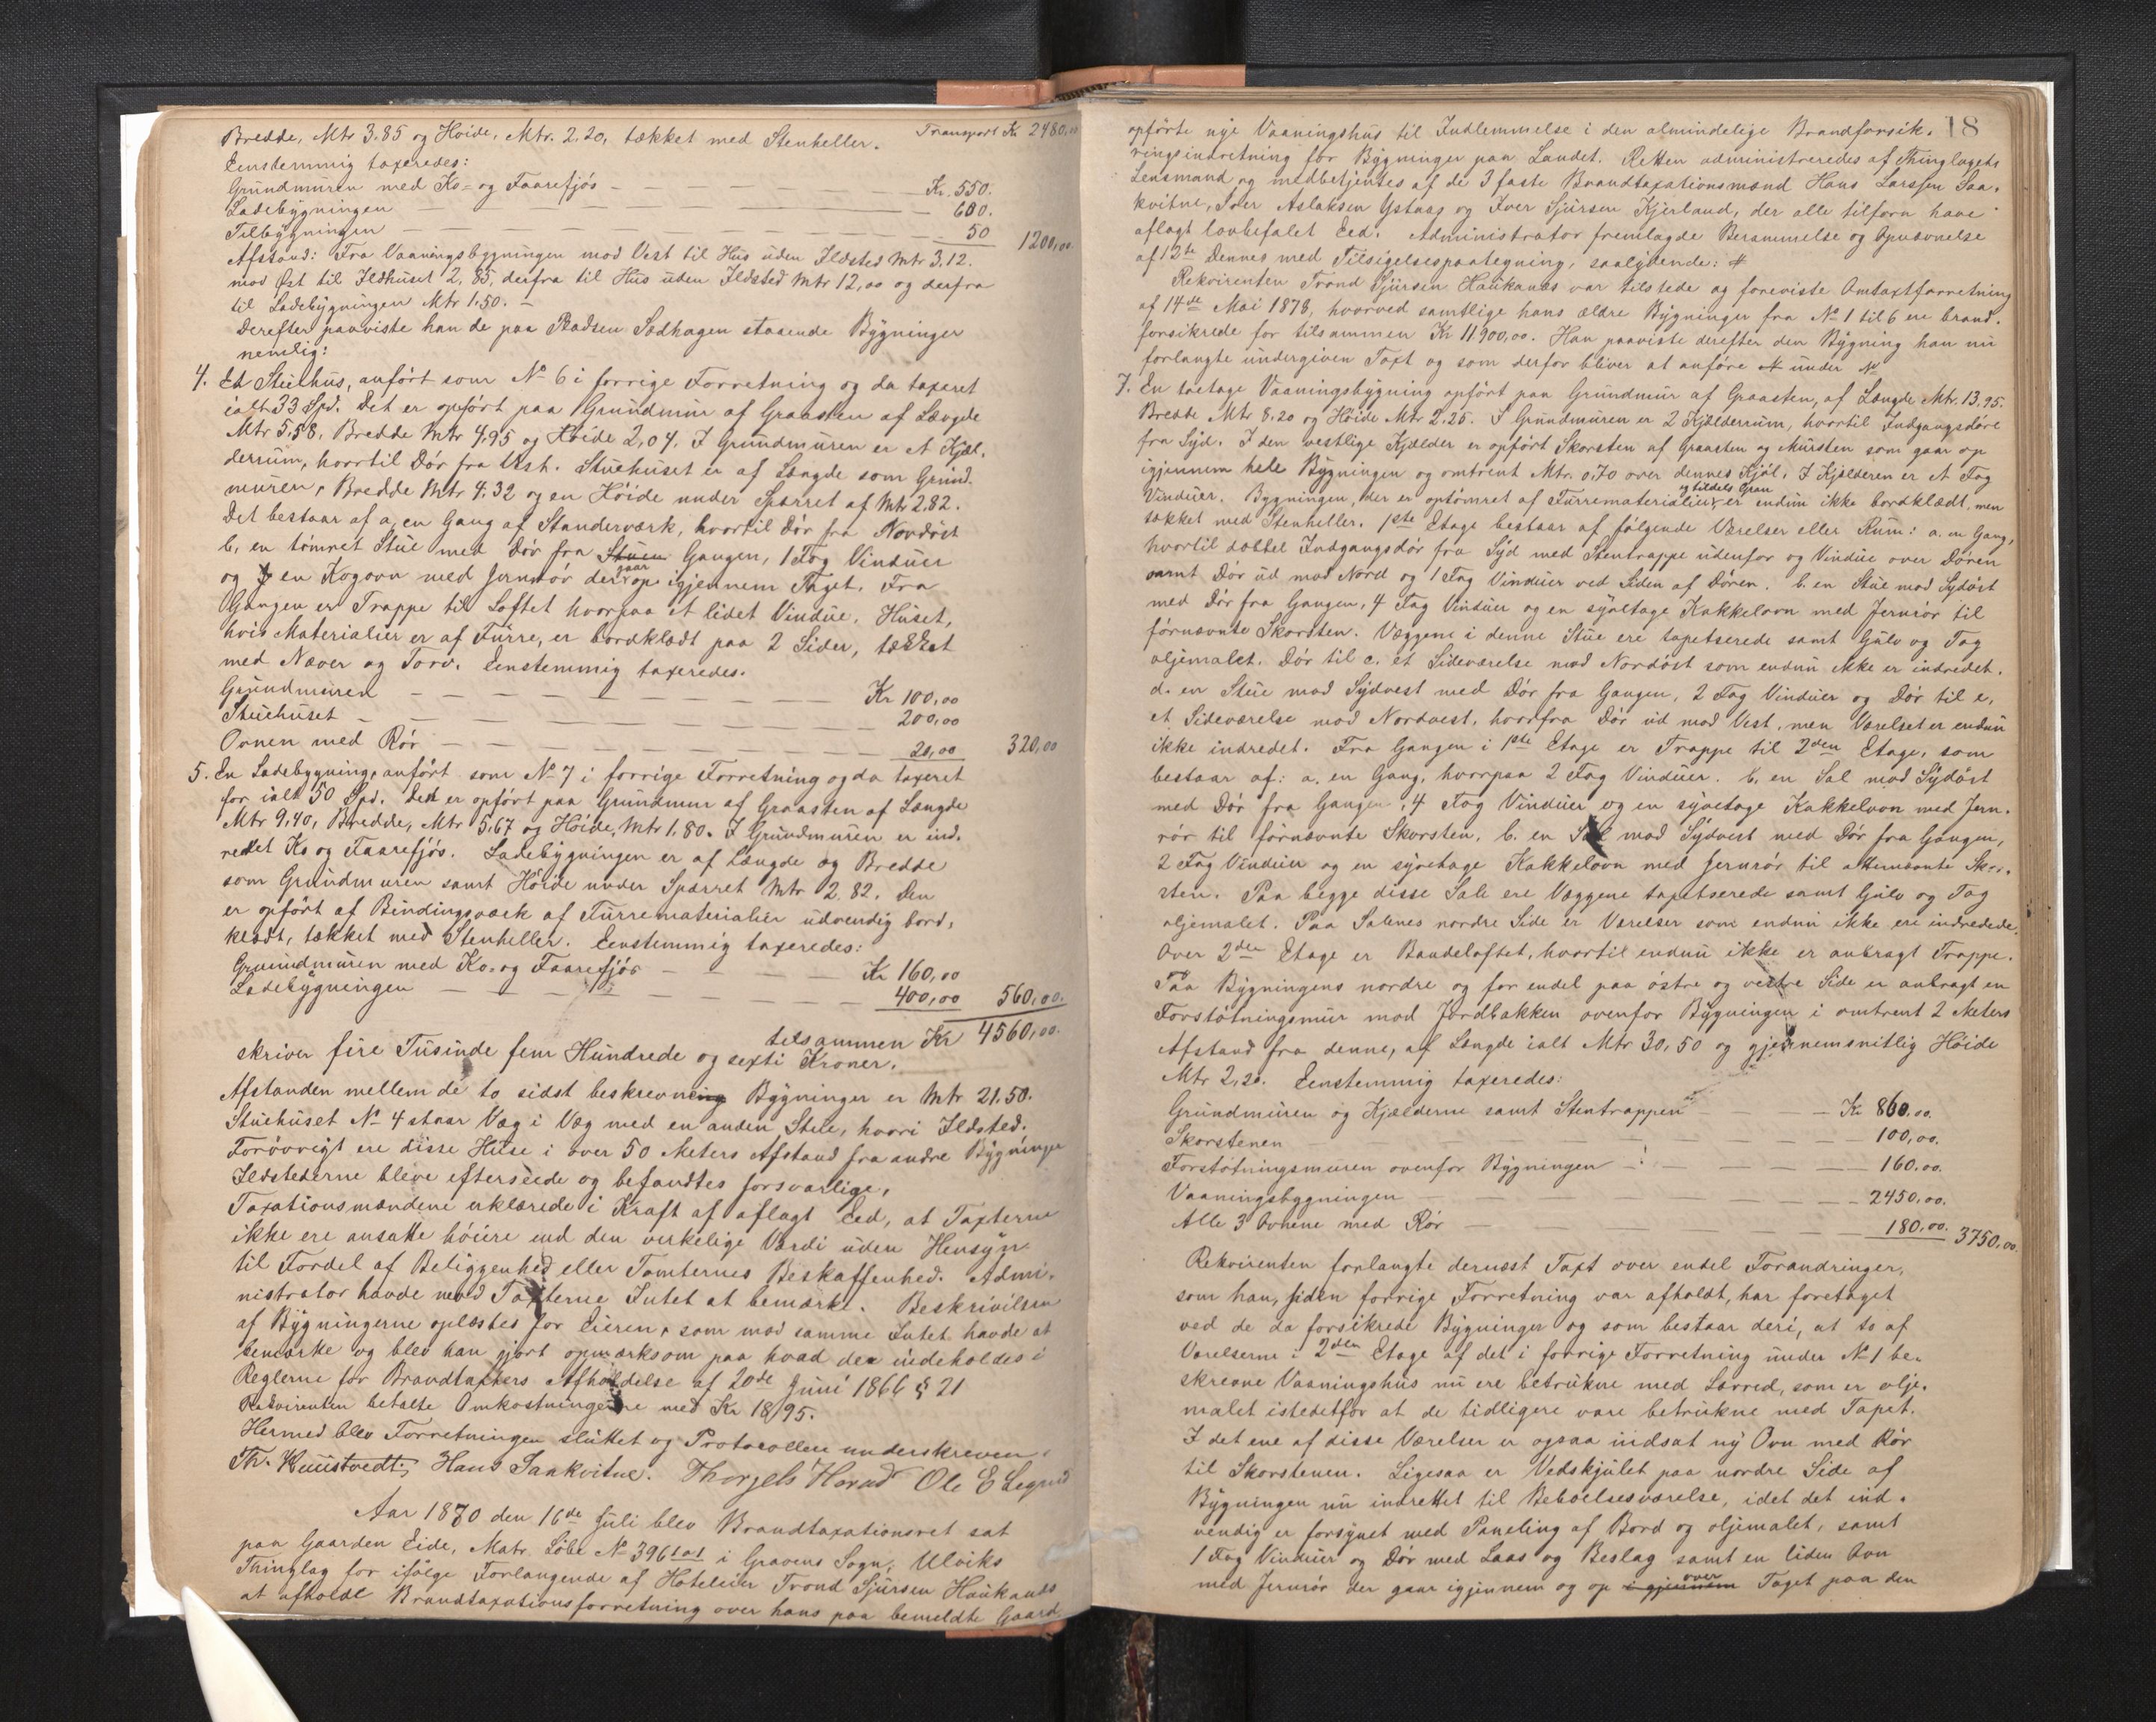 Bredde, Mtr 3.85 og Høide, Mtr. 2.20, tækket med Stenheller. Transport Kr 2480,00
Eenstemmig taxeredes:
Grundmuren med Ko- og Faarefjøs — Kr. 550.
Ladebygningen — 600.
Tilbygningen — 50 1200,00
Afstand: Fra Vaaningsbygningen mod Vest til Hus uden Ildsted Mtr 3.12.
mod Øst til Ildhuset 2,85, derfra til Hus uden Ildsted Mtr 12,00 og derfra
til Ladebygningen Mtr 1.50. —
Derefter paaviste han de paa Pladsen Sødhagen staaende Bygninger
nemlig:
4. Et Stuehus, anført som No 6 i forrige Forretning og da taxeret
ialt 33 Spd. Det er opført paa Grundmur af Graasten af Længde
Mtr 5,58, Bredde Mtr 4,95 og Høide 2,04. I Grundmuren er et Kjæl-
derrum, hvortil Dør fra Vest. Stuehuset er af Længde som Grund-
muren, Bredde Mtr 4.32 og en Høide under Sparret af Mtr 2.82.
Det bestaar af a, en Gang af Standerværk, hvortil Dør fra Nordøst
b, en tømret Stue med Dør fra Stuen Gangen, 1 Fag Vinduer
og en Kogovn med Jernrør der gaar op igjennem Taget. Fra
Gangen er Trappe til Loftet hvorpaa et lidet Vindue. Huset,
hvis Materialier er af Furre, er bordklædt paa 2 Sider, tækket
med Næver og Torv. Eenstemmig taxeredes.
Grundmuren — Kr 100,00
Stuehuset — 200,00
Ovnen med Rør — 20,00 320,00
5. En Ladebygning, anført som No 7 i forrige Forretning og da taxeret
for ialt 50 Spd. Det er opført paa Grundmur af Graasten af Længde
Mtr 9.40, Bredde, Mtr 5.67 og Høide, Mtr 1.80. I Grundmuren er ind-
redet Ko og Faarefjøs. Ladebygningen er af Længde og Bredde
som Grundmuren samt Høide under Sparret Mtr 2.82. Den
er opført af Bindingsværk af Furrematerialier udvendig bord-
klædt, tækket med Stenheller. Eenstemmig taxeredes:
Gruundmuren med Ko- og Faarefjøs — Kr 160,00
Ladebygningen — 400,00 560,00.
tilsammen Kr 4560,00.
skriver fire Tusinde fem Hundrede og sexti Kroner.
Afstanden mellem de to sidst beskrevning Bygninger er Mtr 21.50.
Stuehuset No 4 staar Væg i Væg med en anden Stue, hvori Ildsted.
Forøvrigt ere disse Huse i over 50 Meters Afstand fra andre Bygninger
Ildstederne bleve efterseede og befandtes forsvarlige.
Taxationsmændene erklærede i Kraft af aflagt Eed, at Taxterne
ikke ere ansatte høiere end den virkelige Værdi uden Hensyn
til Fordel af Beliggenhed eller Tomternes Beskaffenhed. Admi-
nistrator havde mod Taxterne Intet at bemærke. Beskrivelsen
af Bygningerne oplæstes for Eieren, som mod samme Intet havde at
bemærke og blev han gjort opmærksom paa hvad der indeholdes i
Reglerne for Brandtaxters Afholdelse af 20de Juni 1866 § 21
Rekvirenten betalte Omkostningerne med Kr 18,95.
Hermed blev Forretningen sluttet og Protocollen underskreven.
Th. Kunstvedt, Hans Saakvitne. Thorgels Horad Ole E
Aar 1880 den 16de Juli blev Brandtaxationsret sat
paa Gaarden Eide, Matr. Løbe No 396 1a1 i Gravens Sogn, Ulviks
Thinglag for ifølge Forlangende af Hoteleier Trond Sjursen Haukanæs
at afholde Brandtaxationsforretning over hans paa bemeldte Gaard
18
opførte nye Vaaningshus til Indlemmelse i den almindelige Brandforsik-
ringsindretning for Bygninger paa Landet. Retten administreredes af Thinglagets
Lensmand og medbetjentes af de 3 faste Brandtaxationsmænd Hans Larssen Saa-
kvitne, Iver Aslaksen Ystaas og Iver Sjursen Kjerland, der alle tilforn have
aflagt lovbefalet Eed. Administrator fremlagde Berammelse og Opnævnelse
af 12te Dennes med Tilsigelsespaategning, saalydende: #
Rekvirenten Trond Sjursen Haukanæs var tilstede og foreviste Omtaxtforretning
af 14de Mai 1878, hvorved samtlige hans ældre Bygninger fra No 1 til 6 ere brand-
forsikrede for tilsammen Kr 11900,00. Han paaviste derefter den Bygning han nu
forlangte undergiven Taxt og som derfor bliver at anføre under No
7. En toetage Vaaningsbygning opført paa Grundmur af Graasten, af Længde Mtr. 13,95.
Bredde Mtr 8.20 og Høide Mtr 2.25. I Grundmuren er 2 Kjælderrum, hvortil Indgangsdøre
fra Syd. I den vestlige Kjælder er opført Skorsten af Graasten og Mursten som gaar op
igjennem hele Bygningen og omtrent Mtr. 0.70 over dennes Kjøl. I Kjælderen er et Fag
Vinduer. Bygningen, der er optømret af Furrematerialier og tildels Gran, er endnu ikke bordklædt, men
tækket med Stenheller. 1ste Etage bestaar af følgende Værelser eller Rum: a. en Gang,
hvortil dobbel Indgangsdør fra Syd med Stentrappe udenfor og Vindue over Døren
samt Dør ud mod Nord og 1 Fag Vinduer ved Siden af Døren. b. en Stue mod Sydøst
med Dør fra Gangen, 4 Fag Vinduer og en syvetage Kakkelovn med Jernrør til
førnævnte Skorsten. Væggene i denne Stue ere tapetserede samt Gulv og Tag
oljemalet. Dør til c. et Sideværelse mod Nordøst som endnu ikke er indredet.
d. en Stue mod Sydvest med Dør fra Gangen, 2 Fag Vinduer og Dør til e,
et Sideværelse mod Nordvest, hvorfra Dør ud mod Vest, men Værelset er endnu
ikke indredet. Fra Gangen i 1ste Etage er Trappe til 2den Etage, som
bestaar af: a. en Gang, hvorpaa 2 Fag Vinduer. b. en Sal mod Sydøst
med Dør fra Gangen, 4 Fag Vinduer og en syvetage Kakkelovn med Jern-
rør til førnævnte Skorsten. b. en Sal mod Sydvest med Dør fra Gangen,
2 Fag Vinduer og en syvetage Kakkelovn med Jernrør til oftenævnte Skor-
sten. Paa begge disse Sale ere Væggene tapetserede samt Gulv og Tag
oljemalet. Paa Salenes nordre Side er Værelser som endnu ikke ere indredede.
Over 2den Etage er Bandeloftet, hvortil endnu ikke er anbragt Trappe.
Paa Bygningens nordre og for endel paa østre og vestre Side er anbragt en
Forstøtningsmur mod Jordbakken ovenfor Bygningen i omtrent 2 Meters
Afstand fra denne, af Længde ialt Mtr 30,50 og gjennemsnitlig Høide
Mtr 2,20. Eenstemmig taxeredes:
Grundmuren og Kjælderne samt Stentrappen — Kr 860,00.
Skorstenen — 100,00.
Forstøtningsmuren ovenfor Bygningen — 160.00.
Vaaningsbygningen — 2450,00.
Alle 3 Ovnene med Rør — 180,00. 3750,00.
Rekvirenten forlangte dernæst Taxt over endel Forandringer,
som han, siden forrige Forretning var afholdt, har foretaget
ved de da forsikrede Bygninger og som bestaar deri, at to af
Værelserne i 2den Etage af det i forrige Forretning under No 1 be-
skrevne Vaaningshus nu ere betrukne med Lærred, som er olje-
malet istedetfor at de tidligere vare betrukne med Tapet.
I det ene af disse Værelser er ogsaa indsat ny Ovn med Rør
til Skorstenen. Ligesaa er Vedskjulet paa nordre Side af
Bygningen nu indrettet til Beboelsesværelse, idet det ind-
vendig er forsynet med Paneling af Bord og oljemalet, samt
1 Fag Vinduer og Dør med Laas og Beslag samt en liden Ovn
med Jernrør der gaar igjennem og op igjennem over Taget paa den